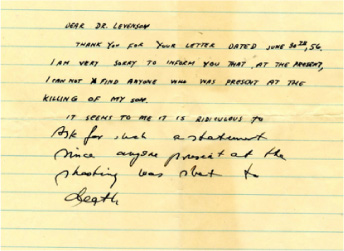 DEAR DR. LEVENSON
THANK YOU FOR YOUR LETTER DATED JUNE 20TH, 56.
I AM VERY SORRY TO INFORM YOU THAT AT THE PRESENT,
I CAN NOT FIND ANYONE WHO WAS PRESENT AT THE
KILLING OF MY SON.
IT SEEMS TO ME IT IS RIDICULOUS TO
Ask for such a statement
since anyone present at the
shooting was shot to
death